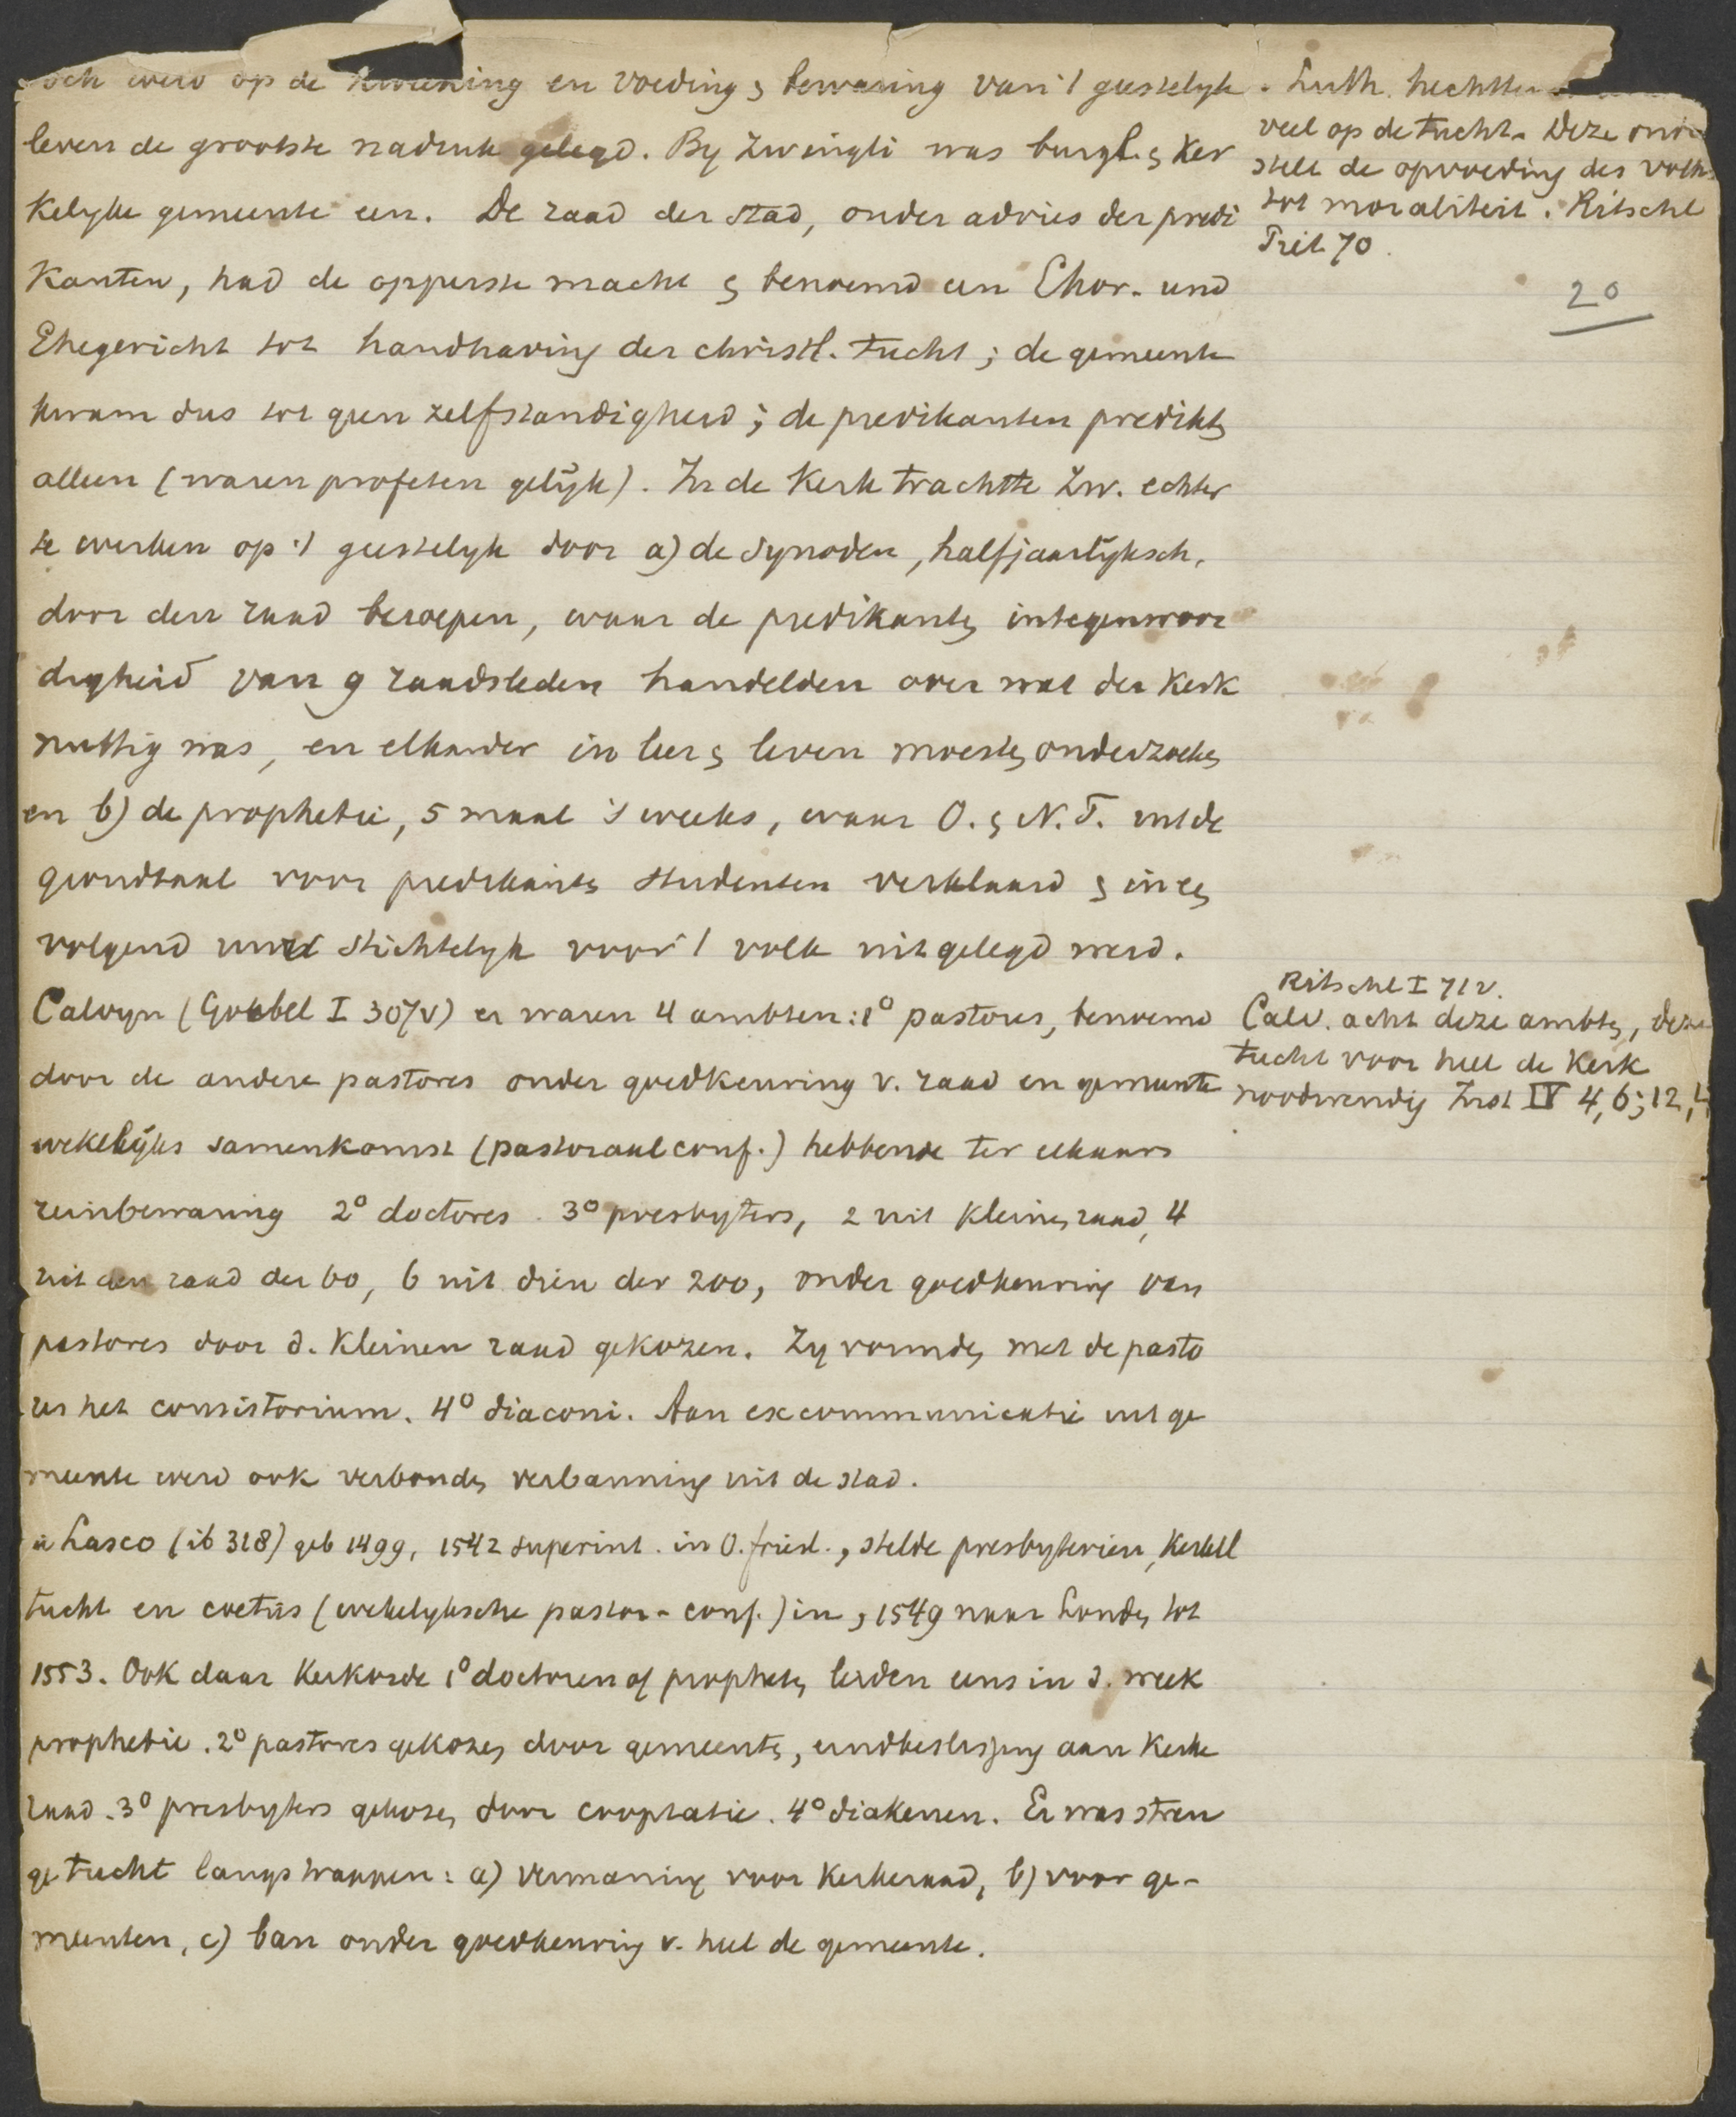 och werd op de kweeking en voeding & bewaring van 't geestelyk
leven de grootste nadruk gelegd. By Zwingli was burgl. & ker
kelyke gemeente een. De raad der stad, onder advies der predi
kanten, had de opperste macht & benoemd een Chor- und
Ehegericht tot handhaving der christl. tucht; de gemeente
kwam dus tot geen zelfstandigheid; de predikanten predikten
alleen (waren profeten gelijk). In de Kerk trachtte Zw. echter
te werken op 't geestelyk door a) de synoden, halfjaarlijksch,
door den raad beroepen, waar de predikanten in tegenwoor
digheid van 9 raadsleden handelden over wat der Kerk
nuttig was, en elkander in leer & leven moesten onderzoeken
en b) de prophetie, 5 maal 's weeks, waar O. & N.T. uit de
grondtaal voor predikants studenten verklaard & in een
volgend uur stichtelyk voor 't volk uitgelegd werd.
Calvyn (Goebel I 307v) er waren 4 ambten: 1° pastores, benoemd
door de andere pastores onder goedkeuring v. raad en gemeente
wekelijks samenkomst (pastoraal conf.) hebbende ter elkaars
reinbewaring 2° doctores. 3° presbyters, 2 uit kleinen raad, 4
uit den raad der 60, 6 uit dien der 200, onder goedkeuring van
pastores door d. kleinen raad gekozen. Zy vormden met de pasto
res het consistorium. 4° diaconi. Aan excommunicatie uit ge
meente werd ook verbonden verbanning uit de stad.
à Lasco (ib 318) geb 1499, 1542 superint. in O. friesl., stelde presbyterien, kerkel
tucht en coetus (wekelyksche pastor-conf.) in, 1549 naar Londen tot
1553. Ook daar Kerkorde 1° doctoren of propheten leiden eens in d. week
prophetie. 2° pastores gekozen door gemeente, eindbeslissing aan Kerke
raad. 3° presbyters gekozen door cooptatie. 4° diakenen. Er was stren
ge tucht langs trappen: a) vermaning voor Kerkeraad, b) voor ge-
meenten, c) ban onder goedkeuring v. heel de gemeente.
Luth. hechtte
veel op de tucht. Deze onder
stelt de opvoeding des volks
tot moraliteit. Ritschl
Piet 70.
20
Ritschl I 71v.
Calv. acht deze ambten, deze
tucht voor heel de Kerk
noodwendig Inst IV 4,6; 12,4